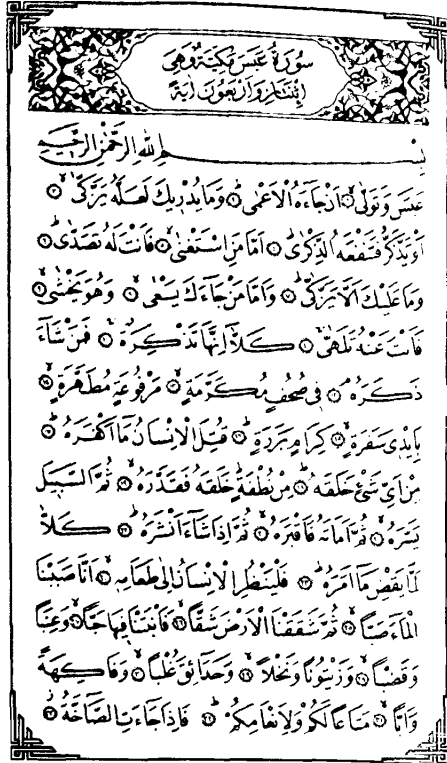 سُورَةُ عَبَسَ مَكِّيَّةٌ وَهِىَ
اِثْنَتَانِ وَاَرْبَعُونَ اٰيَةً
بِسْمِ اللّٰهِ الرَّحْمٰنِ الرَّحِيمِ
عَبَسَ وَتَوَلّٰىۙ ١ اَنْ جَاۤءَهُ الْاَعْمٰىۜ ٢ وَمَا يُدْرِيكَ لَعَلَّهُ يَزَّكّٰىۙ ٣
اَوْ يَذَّكَّرُ فَتَنْفَعَهُ الذِّكْرٰىۜ ٤ اَمَّا مَنِ اسْتَغْنٰىۙ ٥ فَاَنْتَ لَهُ تَصَدّٰىۜ ٦
وَمَا عَلَيْكَ اَلَّا يَزَّكّٰىۜ ٧ وَاَمَّا مَنْ جَاۤءَكَ يَسْعٰىۙ ٨ وَهُوَ يَخْشٰىۙ ٩
فَاَنْتَ عَنْهُ تَلَهّٰىۚ ١٠ كَلَّاۤ اِنَّهَا تَذْكِرَةٌۚ ١١ فَمَنْ شَاۤءَ
ذَكَرَهُۢ ١٢ فِى صُحُفٍ مُكَرَّمَةٍۙ ١٣ مَرْفُوعَةٍ مُطَهَّرَةٍۙ ١٤
بِاَيْدِى سَفَرَةٍۙ ١٥ كِرَامٍ بَرَرَةٍۜ ١٦ قُتِلَ الْاِنْسَانُ مَاۤ اَكْفَرَهُۜ ١٧
مِنْ اَىِّ شَىْءٍ خَلَقَهُۜ ١٨ مِنْ نُطْفَةٍۜ خَلَقَهُ فَقَدَّرَهُۙ ١٩ ثُمَّ السَّبِيلَ
يَسَّرَهُۙ ٢٠ ثُمَّ اَمَاتَهُ فَاَقْبَرَهُۙ ٢١ ثُمَّ اِذَا شَاۤءَ اَنْشَرَهُۜ ٢٢ كَلَّا
لَمَّا يَقْضِ مَاۤ اَمَرَهُۜ ٢٣ فَلْيَنْظُرِ الْاِنْسَانُ اِلٰى طَعَامِهِۙ ٢٤ اَنَّا صَبَبْنَا
الْمَاۤءَ صَبًّاۙ ٢٥ ثُمَّ شَقَقْنَا الْاَرْضَ شَقًّاۙ ٢٦ فَاَنْبَتْنَا فِيهَا حَبًّاۙ ٢٧ وَعِنَبًا
وَقَضْبًاۙ ٢٨ وَزَيْتُونًا وَنَخْلًاۙ ٢٩ وَحَدَاۤئِقَ غُلْبًاۙ ٣٠ وَفَاكِهَةً
وَاَبًّاۙ ٣١ مَتَاعًا لَكُمْ وَلِاَنْعَامِكُمْۜ ٣٢ فَاِذَا جَاۤءَتِ الصَّاۤخَّةُۘ ٣٣